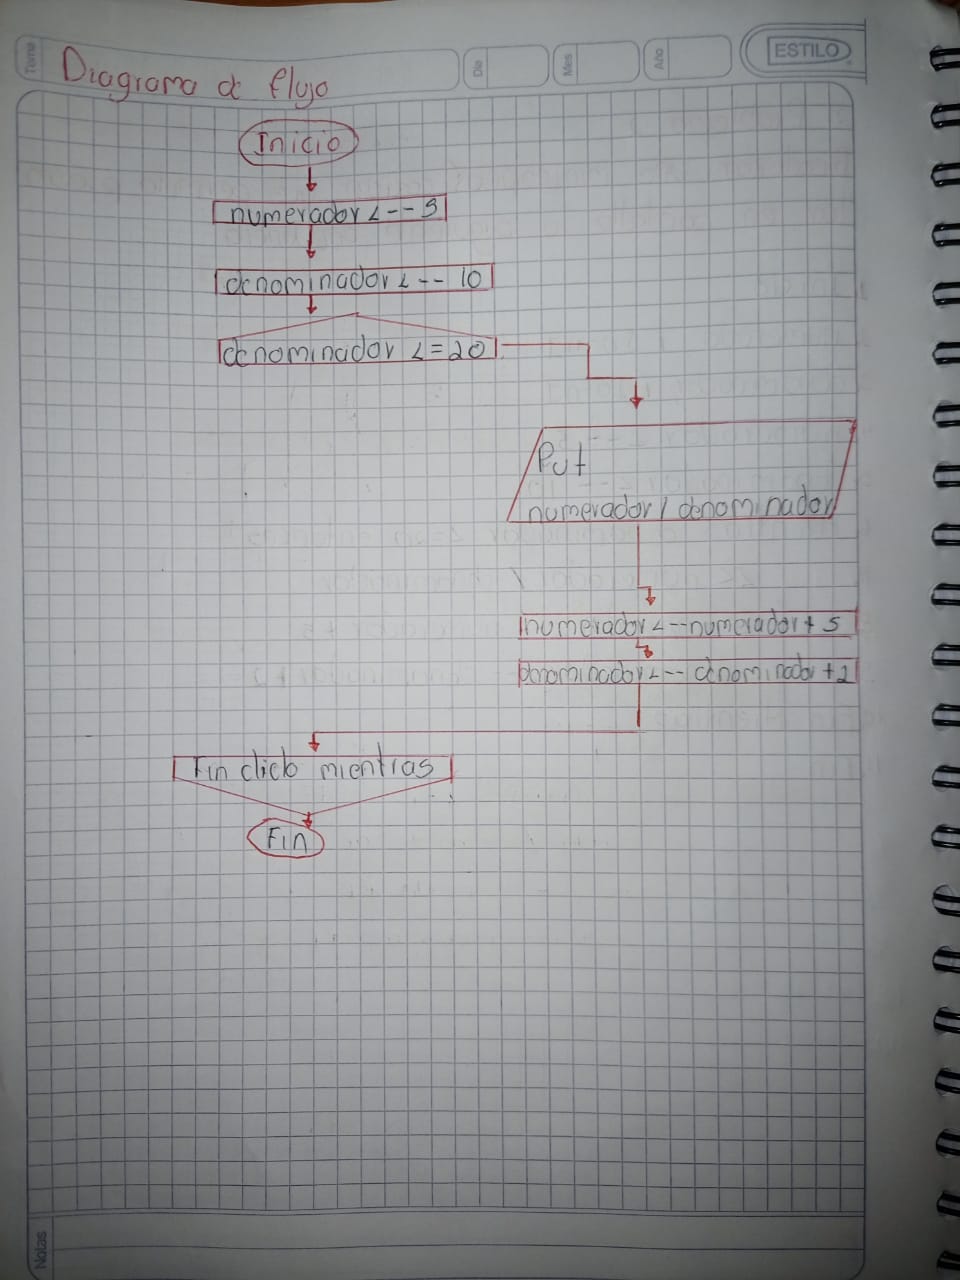 Tema
Diagrama de flujo
Dia
Mes
Año
ESTILO
Inicio
numerador <-- 5
denominador <-- 10
denominador <=20
Put
numerador / denominador
numerador <--numerador + 5
denominador <-- denominador +2
Fin ciclo mientras
Fin
Notas